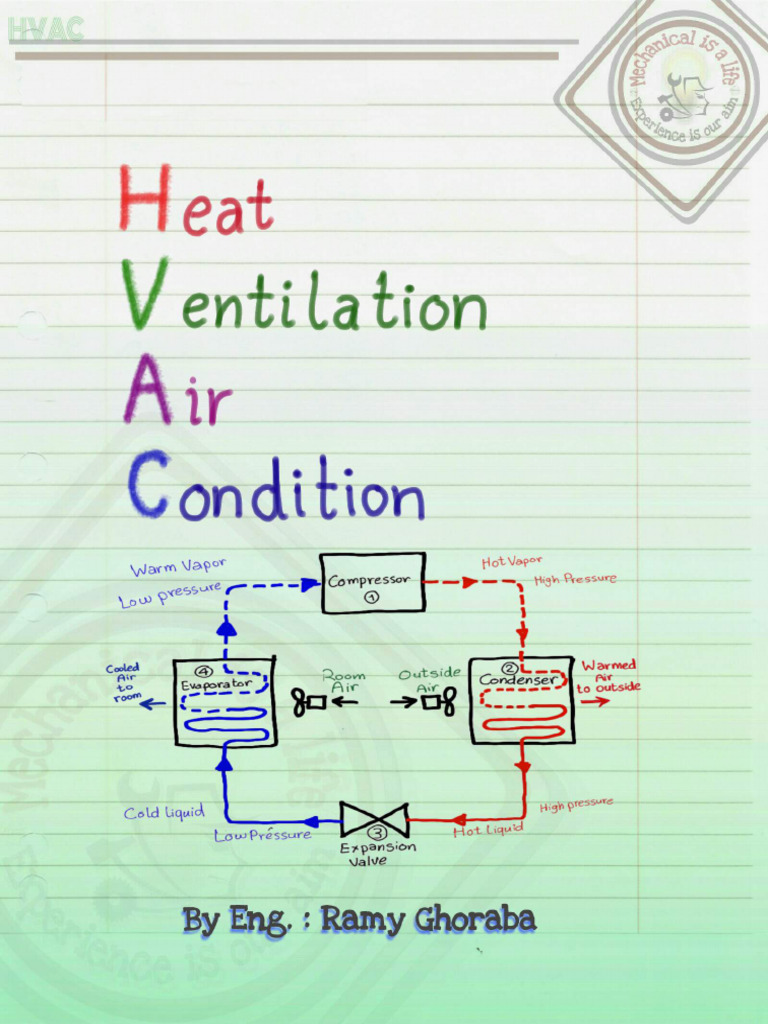 HVAC
Mechanical is a life
Experience is our aim
Heat
Ventilation
Air
Condition
Warm Vapor
Low pressure
Compressor
1
Hot Vapor
High Pressure
Cooled
Air
to
room
4
Evaporator
Room
Air
Outside
Air
2
Condenser
Warmed
Air
to outside
Cold liquid
Low Pressure
3
Expansion
Valve
Hot Liquid
High pressure
By Eng. : Ramy Ghoraba
Mechanical is a life
Experience is our aim